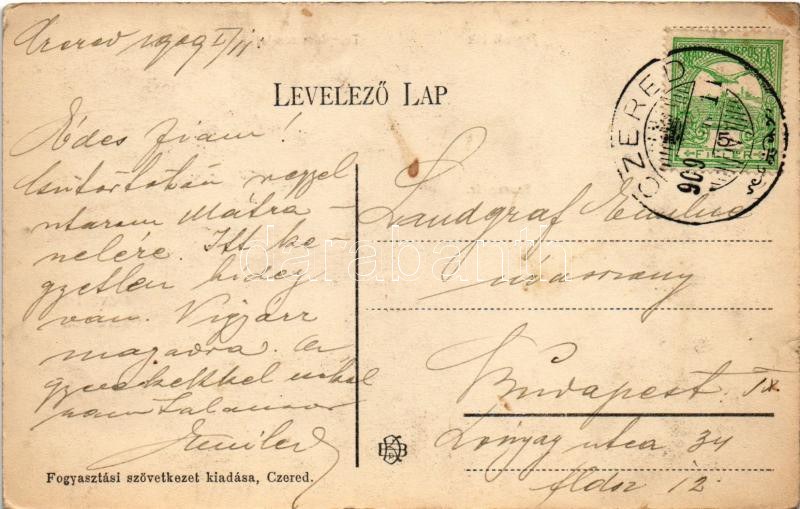 Czered 1909 I/11.
LEVELEZŐ LAP
MAGYAR KIR. POSTA
5
FILLÉR
CZERED
909
Édes fiam!
Csütörtökön reggel
utazom Mátra-
nelére. Itt ke-
gyetlen hideg
van. Vigyázz
magadra. A
gyerekekkel
Landgraf Emilné
úrasszony
Budapest. IX.
Lónyay utca 34
fldsz 12.
Fogyasztási szövetkezet kiadása, Czered.
darabanth